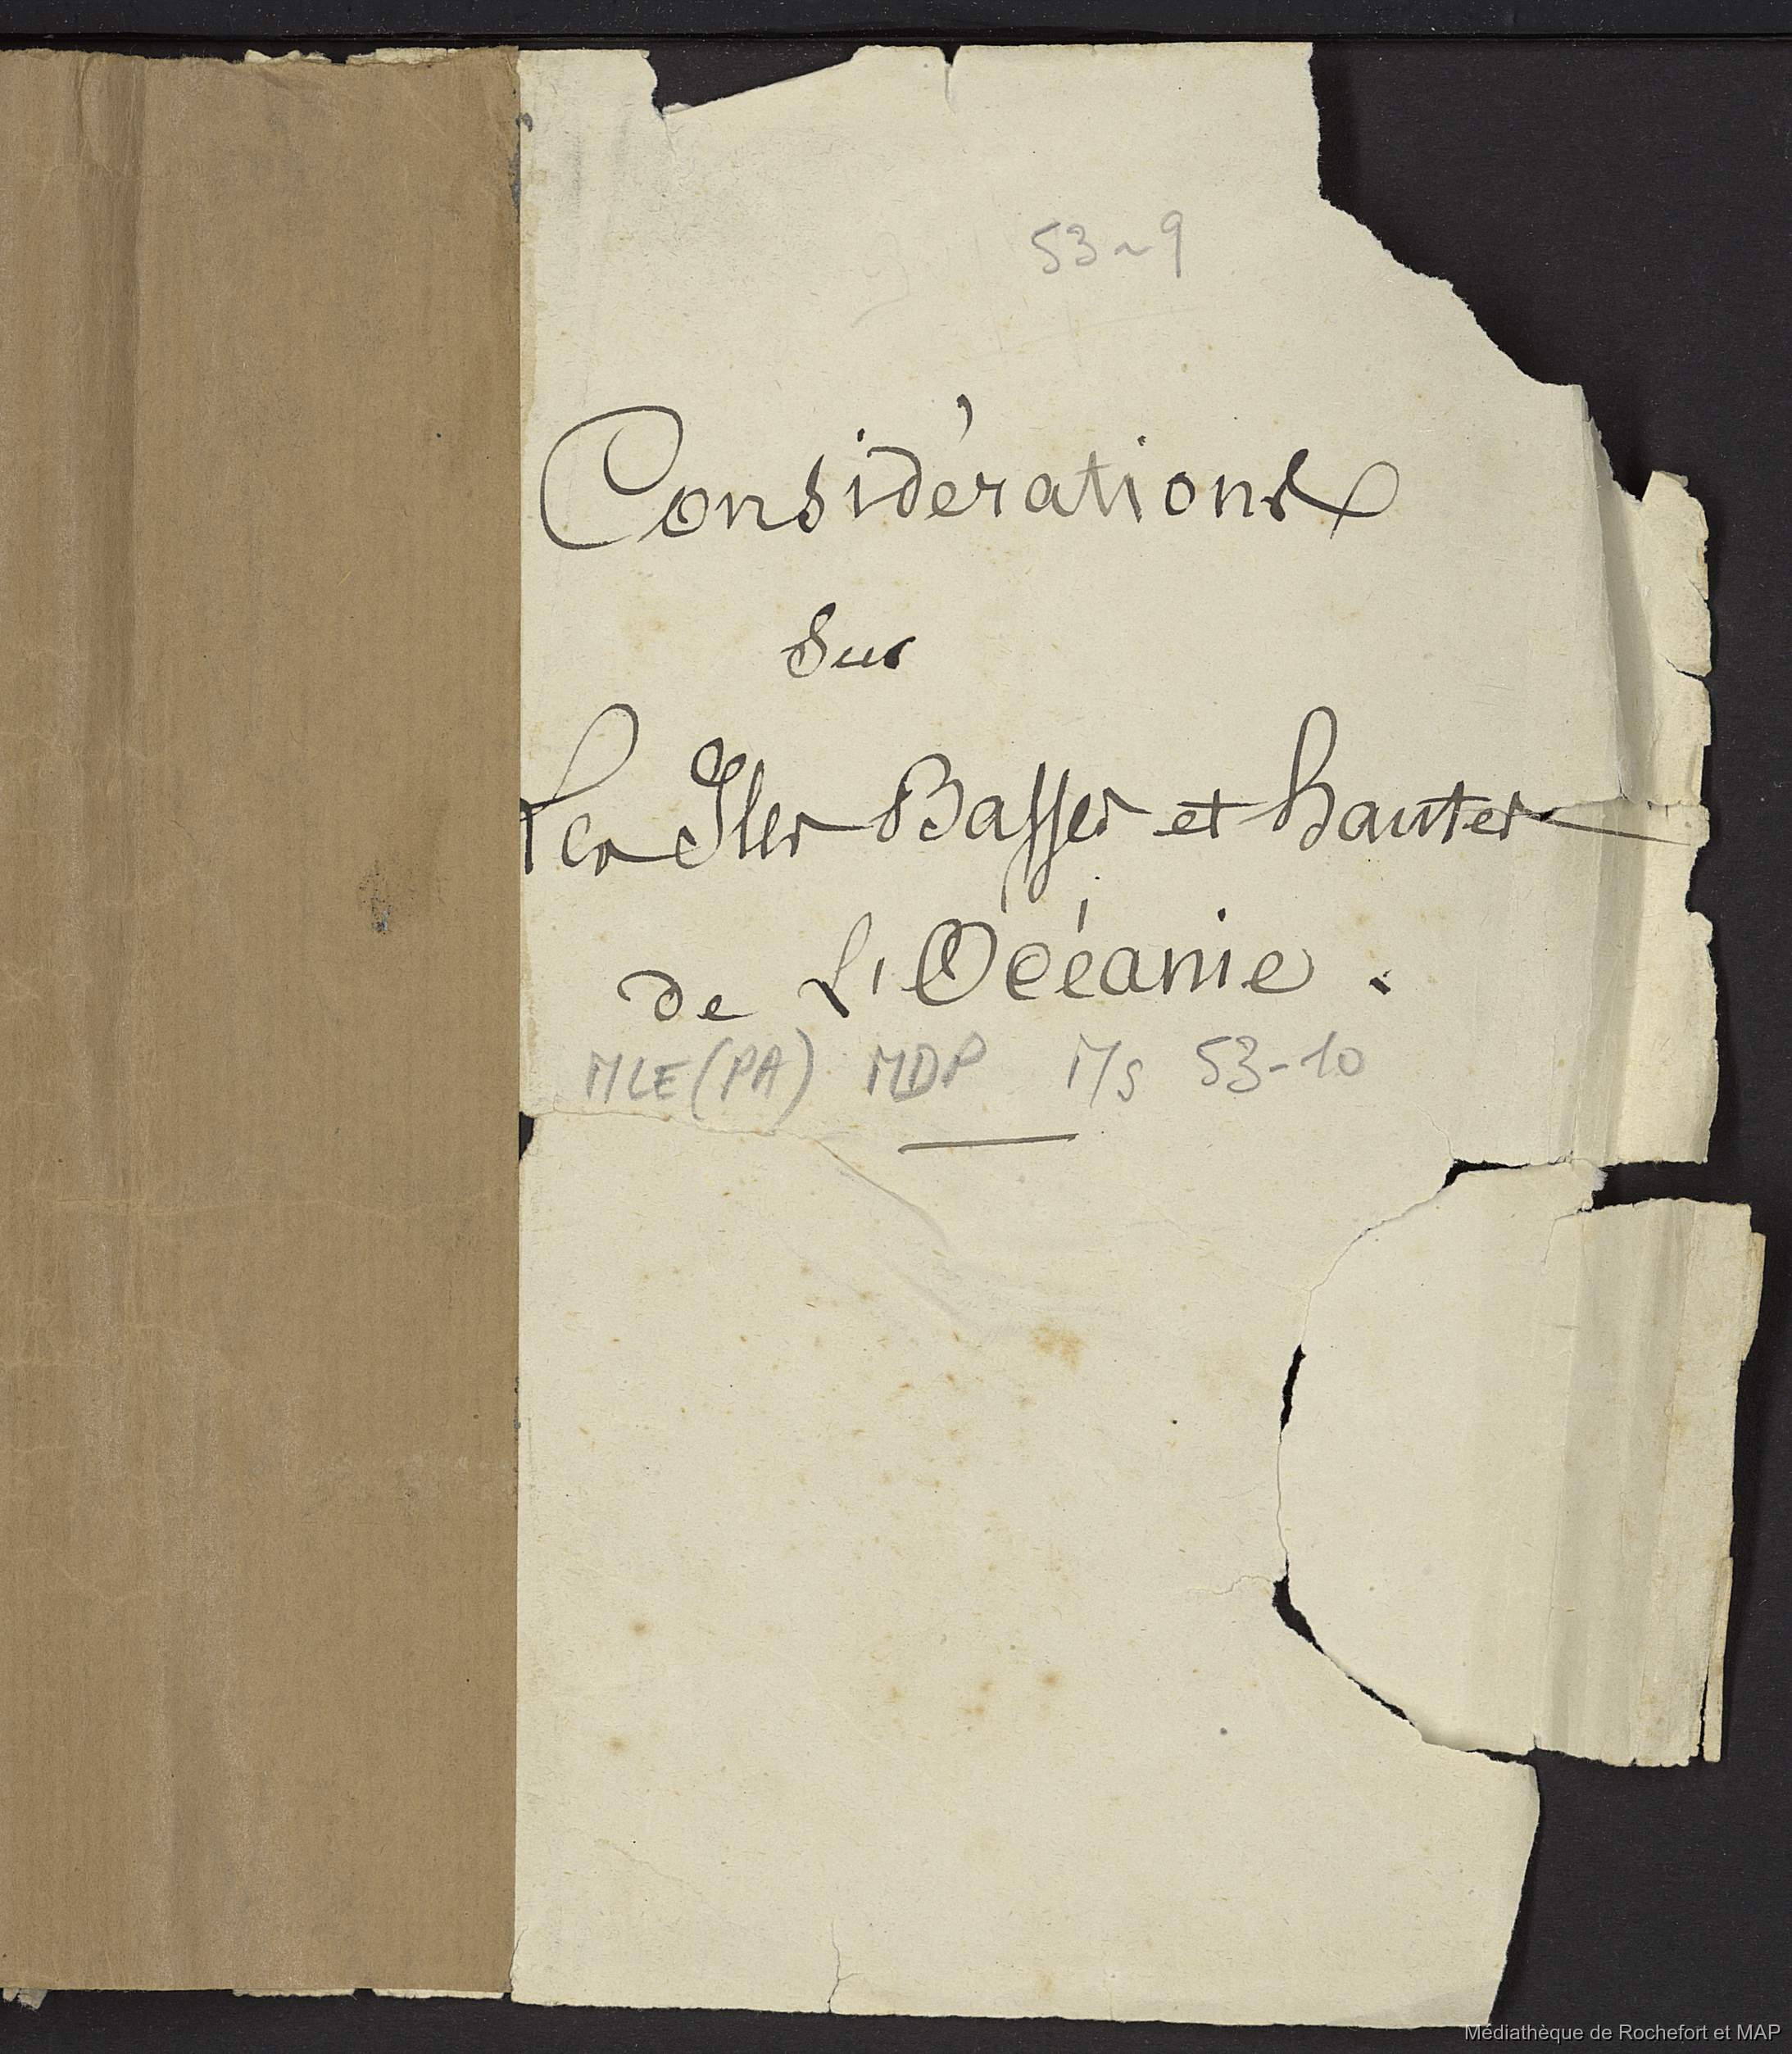 53-9
Considérations
Sur
Les Iles Basses et hautes
de L'Océanie.
MLE(PA) MDP Ms 53-10
Médiathèque de Rochefort et MAP